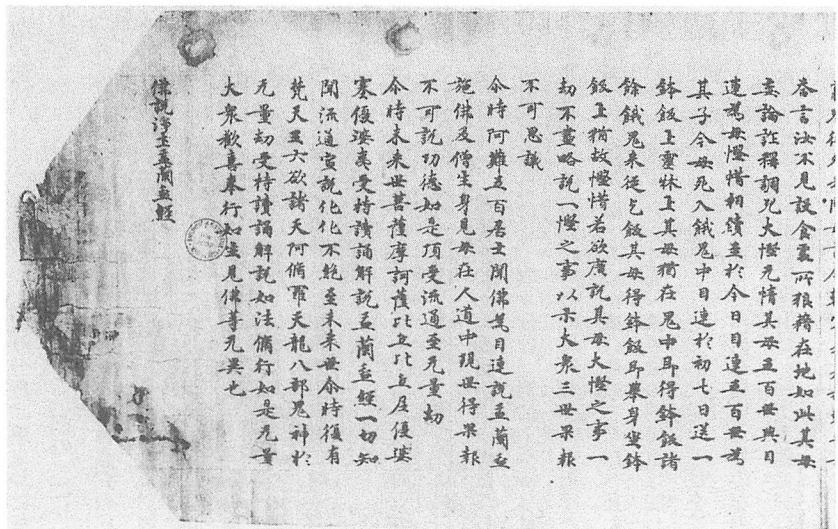 答言汝不見設食處所狼藉在地如此其母
妄論調兒大慳无情其母五百世與目
連為母慳惜相續至於今日目連五百世為
其子今母死入餓鬼中目連於初七日送一
鉢飯上靈牀上其母猶在鬼中即得鉢飯諸
餘餓鬼來從乞飯其母得鉢飯即舉身坐鉢
飯上猶故慳惜若欲廣說其母大慳之事一
劫不盡略說一慳之事以示大衆三世果報
不可思議
尒時阿難五百居士聞佛為目連說盂蘭盆
施佛及僧生身見母在人道中現世得果報
不可說功德如是頂受流通至无量劫
尒時未來世菩薩摩訶薩比丘比丘尼優婆
塞優婆夷受持讀誦解說盂蘭盆經一切知
聞流通宣說化化不絕至未來世尒時復有
梵天王六欲諸天阿脩羅天龍八部鬼神於
无量劫受持讀誦解說如法脩行如是无量
大衆歡喜奉行如生見佛等无異也
佛說淨土盂蘭盆經